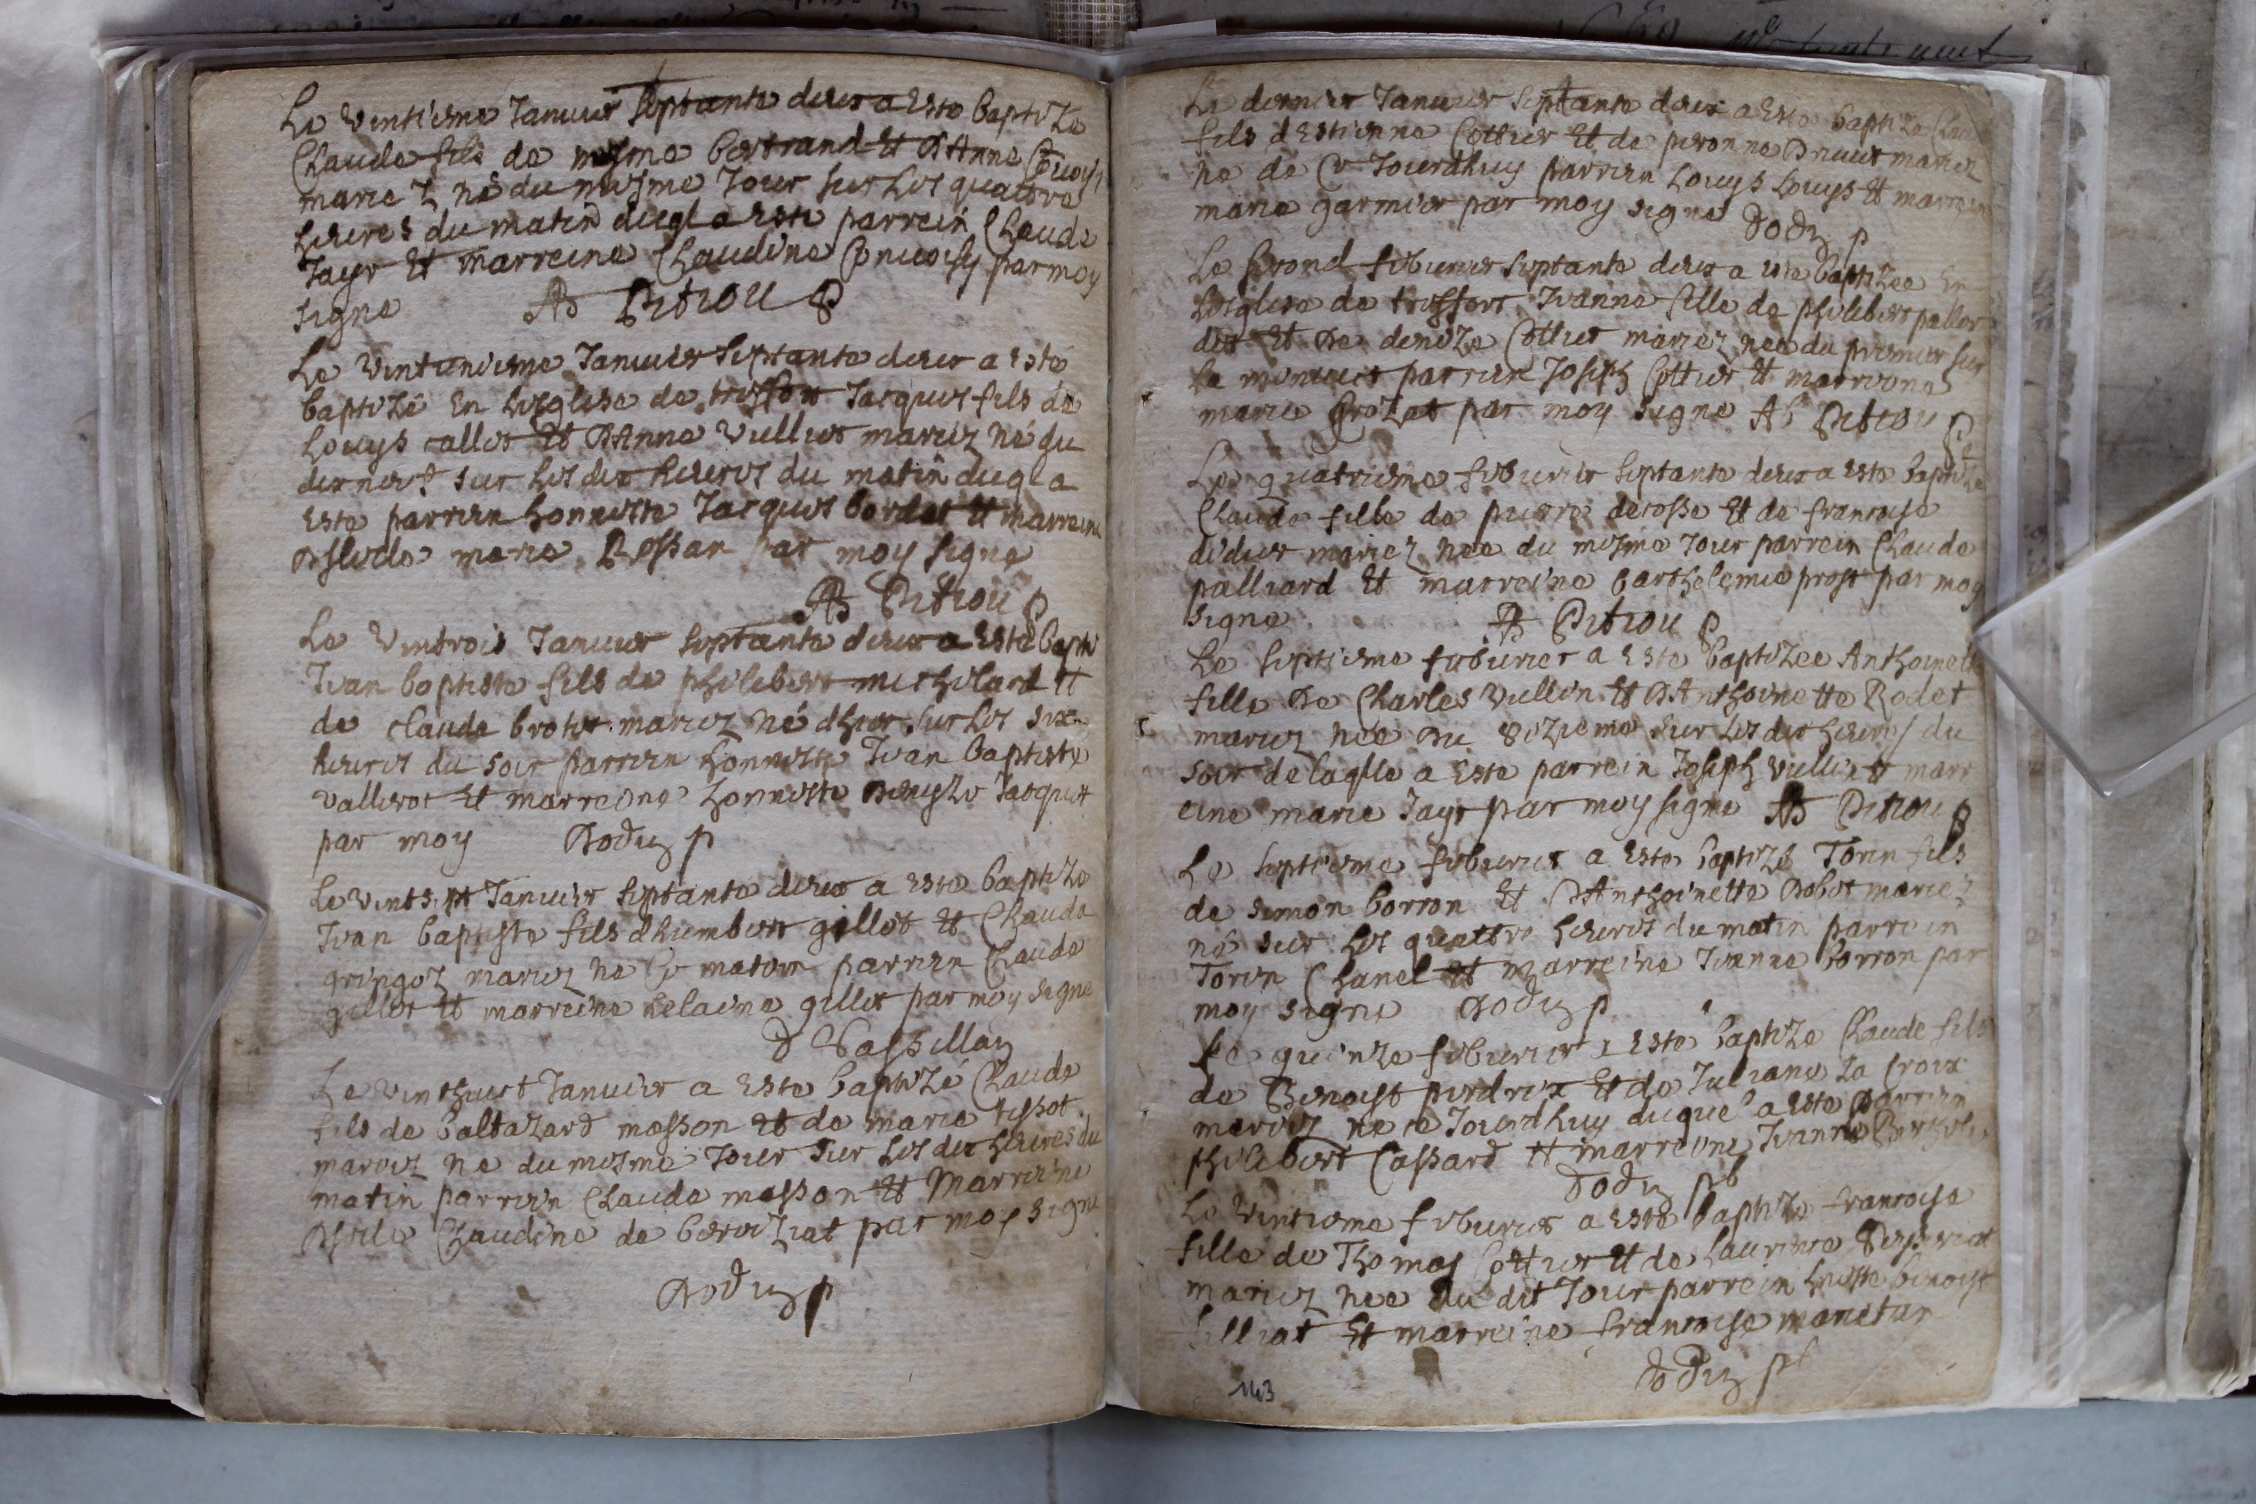 Le vintiesme Januier septante deux a este baptize
Claude fils de mesme bertrand et d'Anne
mariez né du mesme Jour sur les quattre
heures du matin duql a este parrein Claude
Jayr et marreine Claudine Convoisy par moy
signe AB Pitiou p
Le vintunieme Januier septante deux a este
baptizé en lesglise de treffort Jacques fils de
Louys callet et d'Anne Vulliet mariez né du
dernier sur les dix heures du matin duql a
este parrein honneste Jacques bordet et marreine
dslede marie Rossan par moy signe
AB Pitiou p
Le vintrois Januier septante deux a este bapti
Jean baptiste fils de philibert michilard et
de claude brotet mariez né dhier sur les six
heures du soir parrein honneste Jean baptiste
vallerot et marreine honneste denyse Jacquet
par moy Dodun p
Le vintsept Januier septante deux a este baptize
Jean baptiste fils dhumbert gillet et Claude
gringoz mariez ne Ce matin parrein Claude
gillet et marreine helaine gillet par moy signe
D Vassillan
Le vinthuict Januier a este baptizé Claude
fils de baltazard masson et de marie tissot
mariez ne du mesme Jour sur les dix heures du
matin parrein Claude masson et Marreine
Claudine de beroiziat par moy signe
Dodun p
Le dernier Januier septante deux a este baptize
fils destienne Cottier et de peronne mariez
ne de Ce Jourdhuy parrein Louys Louys et marreine
marie garmier par moy signe Dodun p
Le segond feburier septante deux a este baptizee en
lesglise de treffort Jeanne fille de philibert pallor
det et de denize Cottier mariez nee du premier sur
la menuict parrein Joseph Cottier et marreine
marie grozat par moy signe AB Pitiou p
Le quatriesme feburier septante deux a este baptizee
Claude fille de pierre decosse et de francoise
didier mariez nee du mesme Jour parrein Claude
palliard et marreine barthelemie prost par moy
signe AB Pitiou p
Le septiesme feburier a este baptizee Anthoinette
fille de Charles Vullin et d'Anthoinette Rodet
mariez née du sizieme sur les dix heures du
soir de laqlle a este parrein Joseph vullin et marr
eine marie Jayr par moy signe AB Pitiou p
Le septiesme feburier a este baptizé Torin fils
de simon borron et d'Anthoinette Dobot mariez
né sur les quattre heures du matin parrein
Torin Chanel et marreine Jeanne borron par
moy signe Dodun p
Le quinze feburier a este baptizé Claude fils
de Benoist perdrix et de Juliane La Croix
mariez ne ce Jourdhuy duquel a este parrein
philibert Cassard et marreine Jeanne
Dodun pb
Le vintiesme feburier a este baptize francoise
fille de Thomas Cottier et de Laurence
mariez nee du dit Jour parrein hneste benoist
filliat et marreine francoise manetan
Dodun pb
143